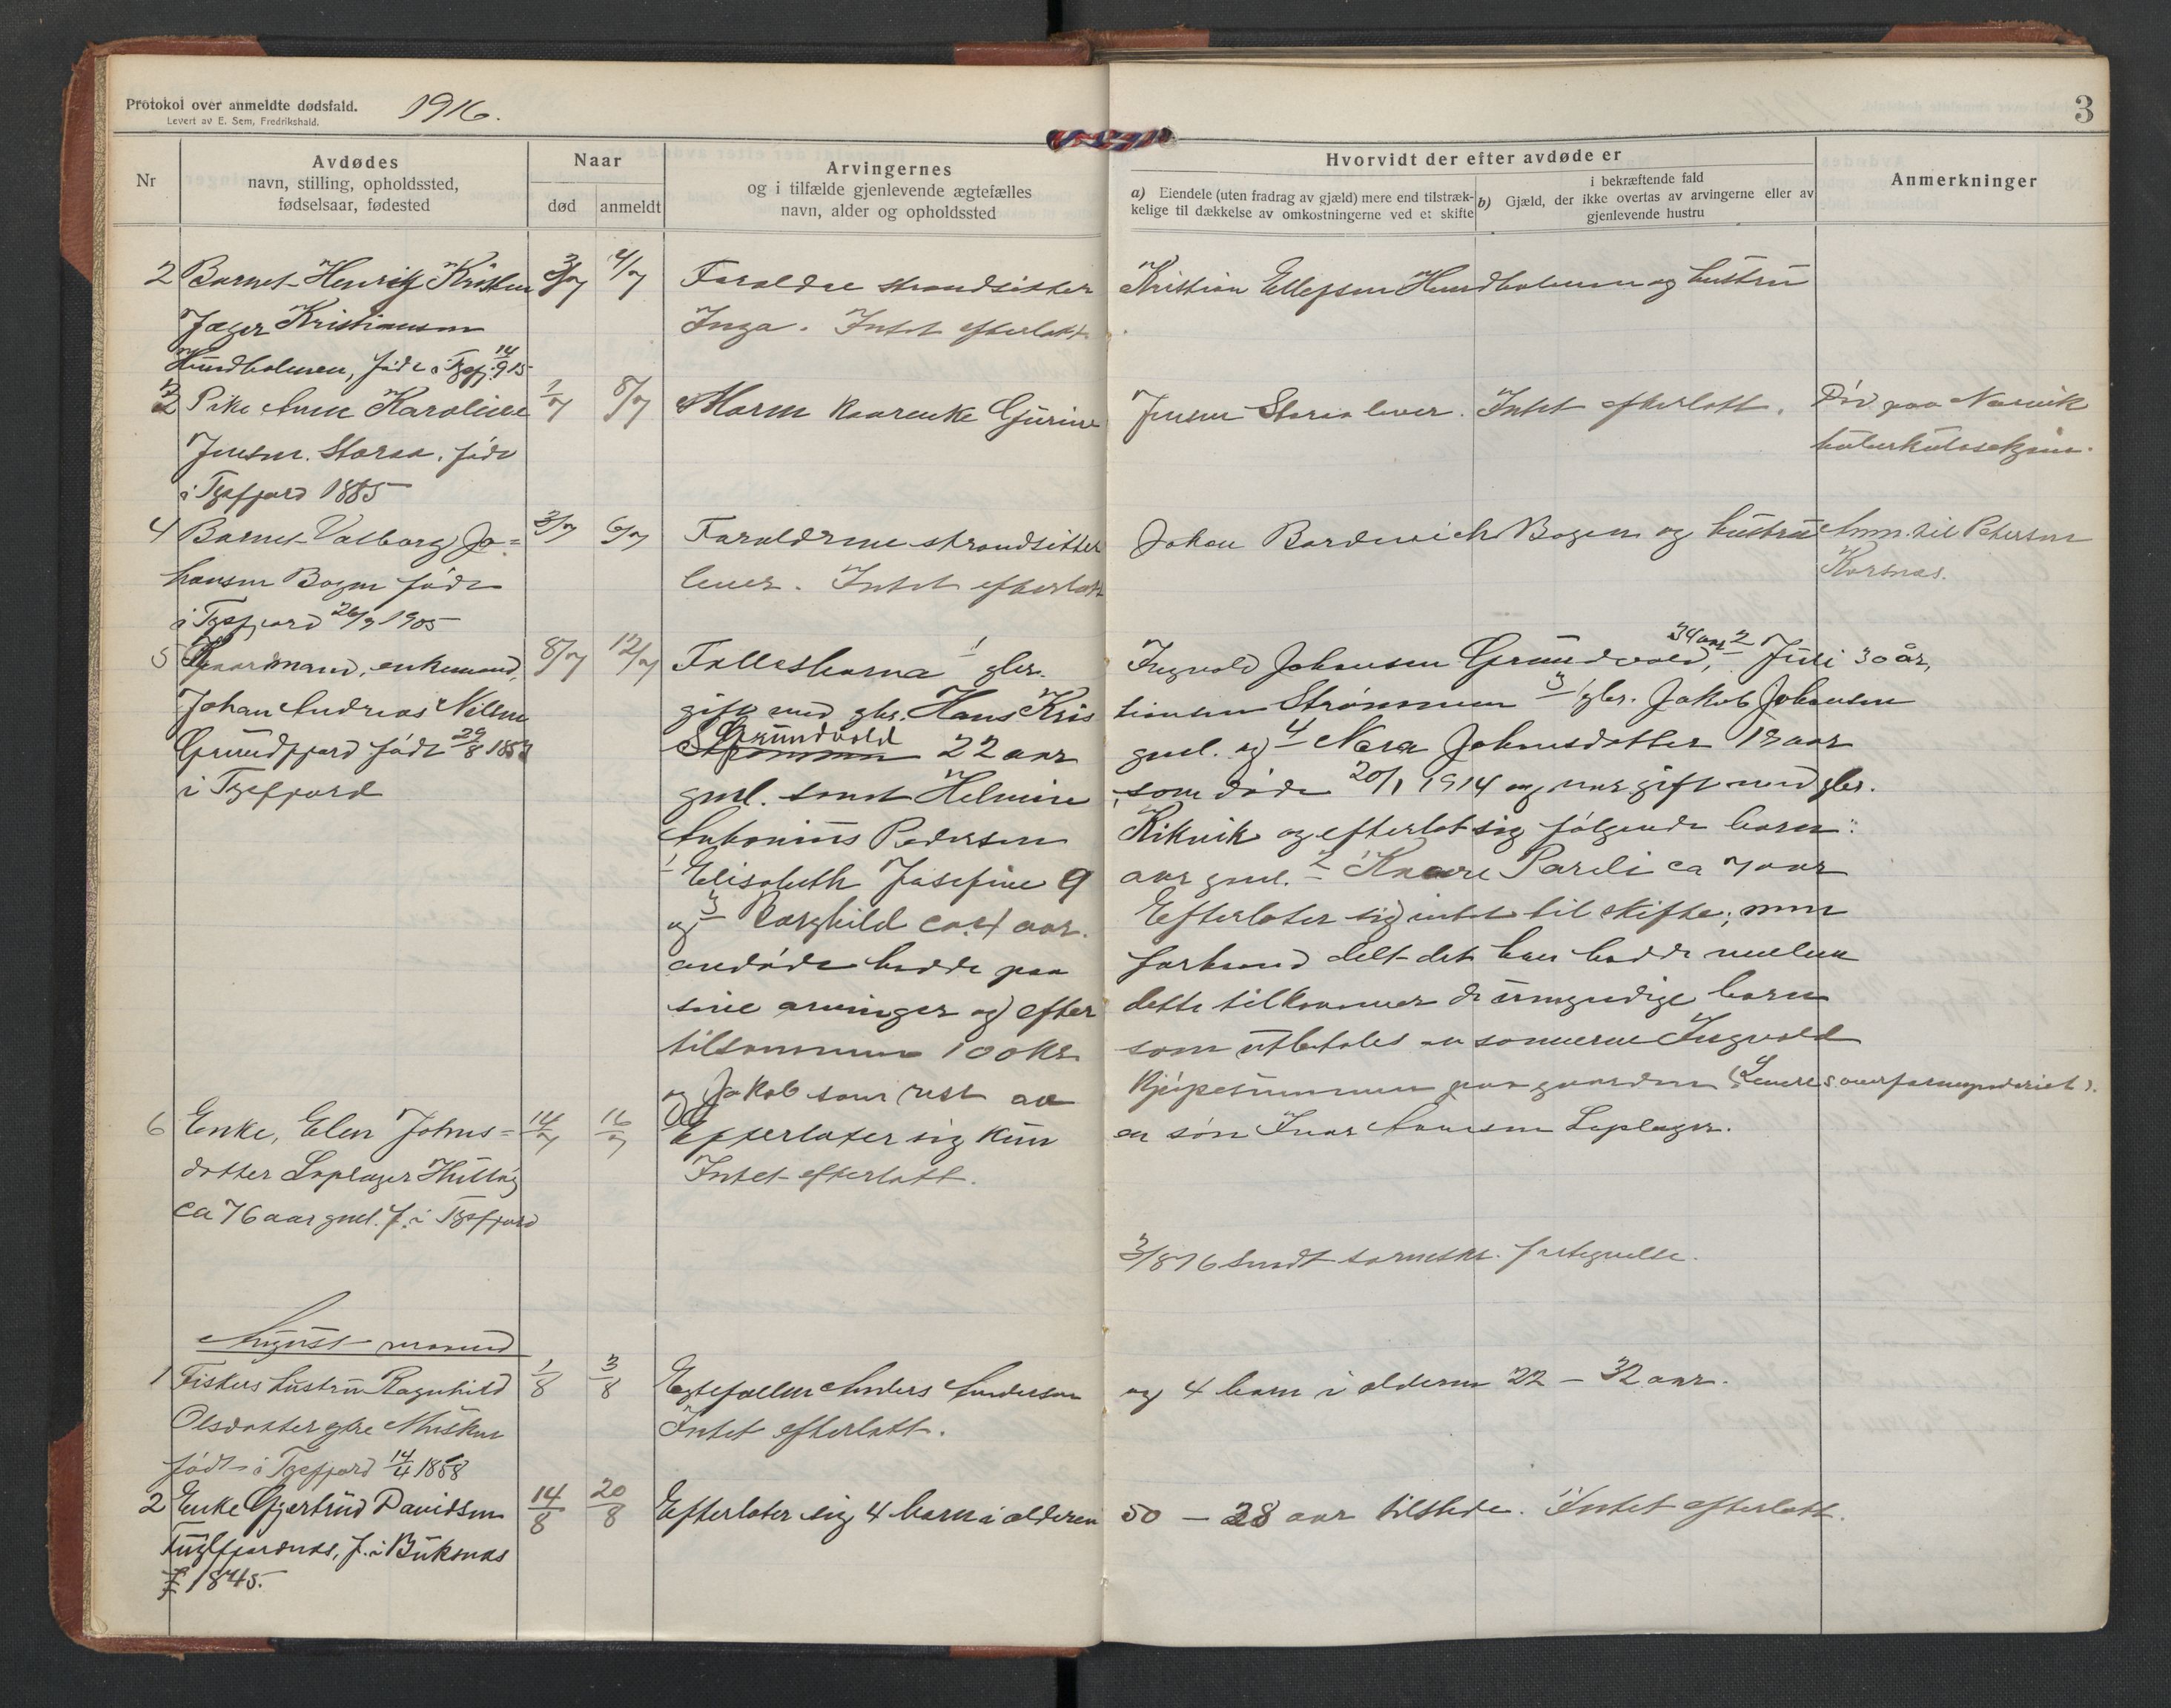 Protokol over anmeldte dødsfald. 1916.
Levert av E. Sem, Fredrikshald.
3
Nr
Avdødes
navn, stilling, opholdssted,
fødselsaar, fødested
Naar
død
anmeldt
Arvingernes
og i tilfælde gjenlevende ægtefælles
navn, alder og opholdssted
Hvorvidt der efter avdøde er
a) Eiendele (uten fradrag av gjæld) mere end tilstræk-
kelige til dækkelse av omkostningerne ved et skifte
i bekræftende fald
b) Gjæld, der ikke overtas av arvingerne eller av
gjenlevende hustru
Anmerkninger
2 Barnet Henrik Kristian 3/7 4/7 Foraldre strandsitter Kristian Ellefsen Hundholmen og hustru
Jæger Kristiansen Inga. Intet efterlatt.
Hundholmen, født i Tysfj. 14/9 15
3 Pike Anne Karoline 1/7 5/7 Moren Kaarenke Gjurine Jensen Storaa lever. Intet efterlatt. Død paa Narvik
Jensen Storaa, født tuberkulosehjem.
i Tysfjord 1885
4 Barnet Valborg Jo= 3/7 6/7 Foraldrene strandsitter Johan Bordewich Bogen og hustru Anm. til Petersen
hansen Bogen født lever. Intet efterlatt Korsnes.
i Tysfjord 26/9 1905
5 Gaardmand, enkemand, 8/7 12/7 Fellesbarna 1 gbr. Ingvald Johansen Grundvold, 34 aar 2 Juli 30 år,
Johan Andreas Nilsen gift med gbr. Hans Kris tiansen Strømmen 3 gbr. Jakob Johansen
Grundfjord født 29/8 185 Strømmen Grundvold 22 aar gml. og 4 Nora Johansdatter 19 aar
i Tysfjord gml. samt Helmine som døde 20/1 1914 og var gift med gbr.
Antonius Pedersen Kikvik og efterlot sig følgende barn:
1 Elisabeth Josefine 9 aar gml. 2 Kaare Pareli ca 7 aar
og 3 Borghild ca. 4 aar. Efterlater sig intet til skifte; men
avdøde hadde paa forhand delt det han hadde mellem
sine arvinger og efter dette tilkommer de umyndige barn
tilsammen 100 kr. som utbetales av sønnerne Ingvald
og Jakob som rest av kjøpesummen paa gaarden (Leveres overformynderiet).
6 Enke, Elen Johns= 14/7 16/7 Efterlater sig kun en søn Ivar Amundsen Leplager.
datter Leplager Hulløy Intet efterlatt.
ca 76 aar gml. f. i Tysfjord
3/8 16 sendt sorenskr. fortegnelse.
August maaned
1 Fiskers hustru Ragnhild 1/8 3/8 Egtefællen Anders Andersen og 4 barn i alderen 22 – 32 aar.
Olsdatter Musken Intet efterlatt.
født i Tysfjord 14/4 1858
2 Enke Gjertrud Davidsen 14/8 20/8 Efterlater sig 4 barn i alderen 50 – 28 aar tilstede. Intet efterlatt.
Fuglfjordnes, f. i Buksnes
f 1845.